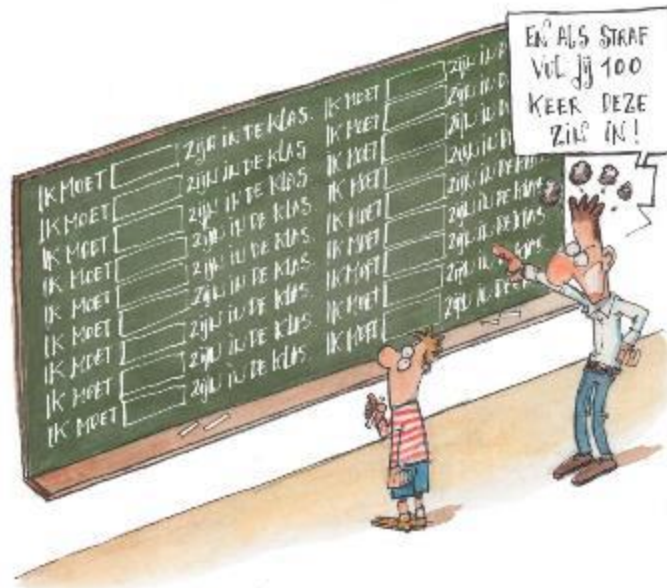 EN ALS STRAF
VUL JIJ 100
KEER DEZE
ZIN IN!
IK MOET ZIJN IN DE KLAS.
IK MOET ZIJN IN DE KLAS
IK MOET ZIJN IN DE KLAS
IK MOET ZIJN IN DE KLAS
IK MOET ZIJN IN DE KLAS.
IK MOET ZIJN IN DE KLAS.
IK MOET ZIJN IN DE KLAS.
IK MOET ZIJN IN DE KLAS.
IK MOET ZIJN IN DE KLAS.
IK MOET ZIJN IN
IK MOET ZIJN IN
IK MOET ZIJN IN
IK MOET ZIJN IN DE
IK MOET ZIJN IN DE KLAS
IK MOET ZIJN IN DE KLAS
IK MOET ZIJN IN DE KLAS
IK MOET ZIJN IN
IK MOET ZIJN IN DE